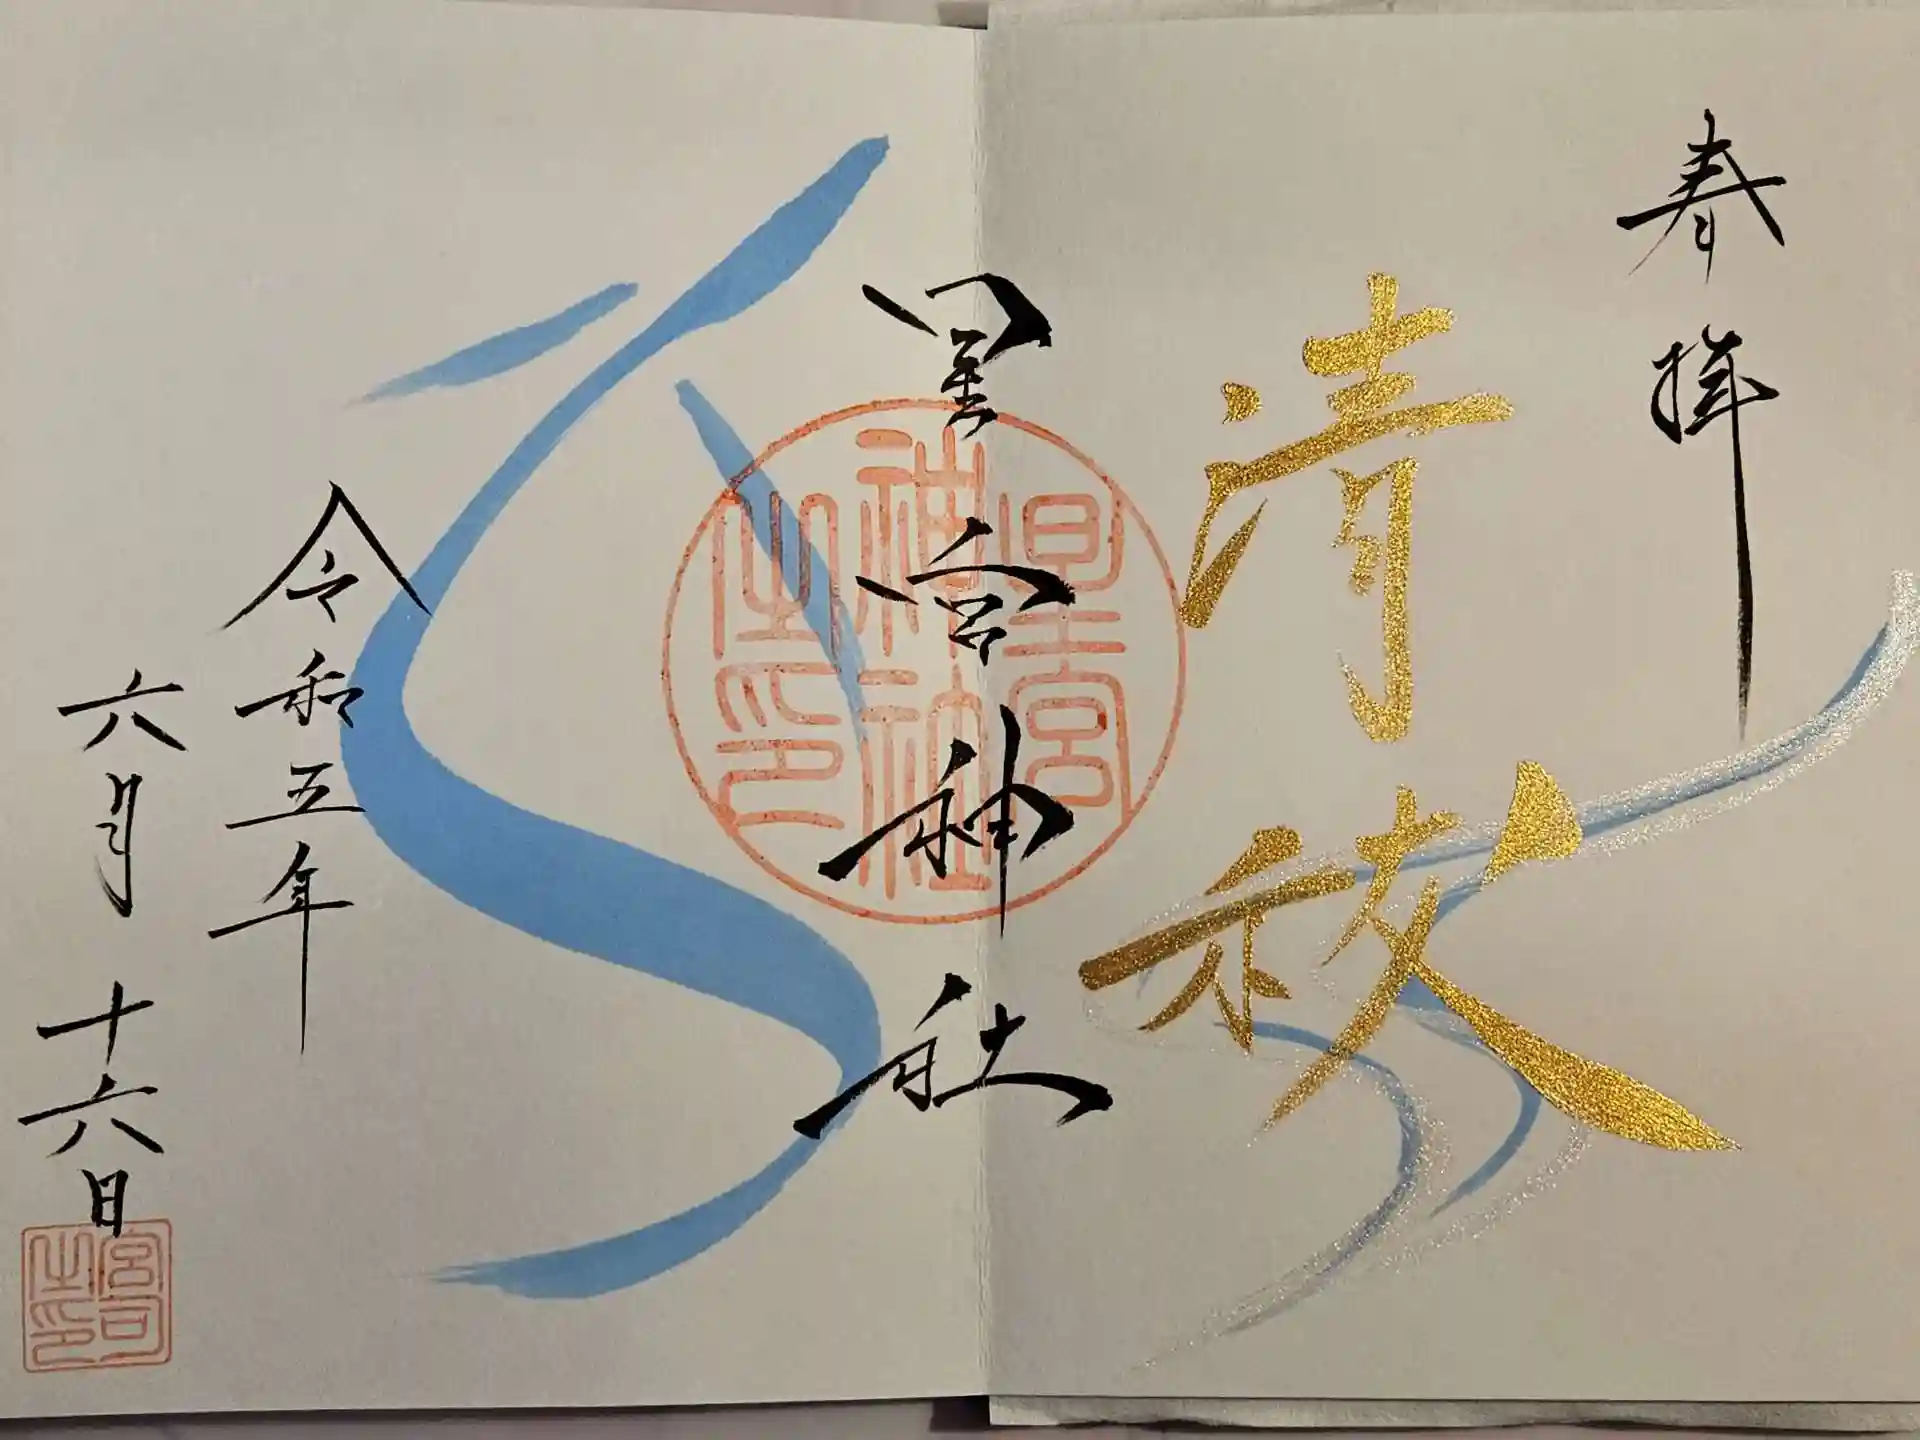 奉拝
清祓
星宮神社
星宮
神社
之印
令和五年
六月十六日
宮司
之印